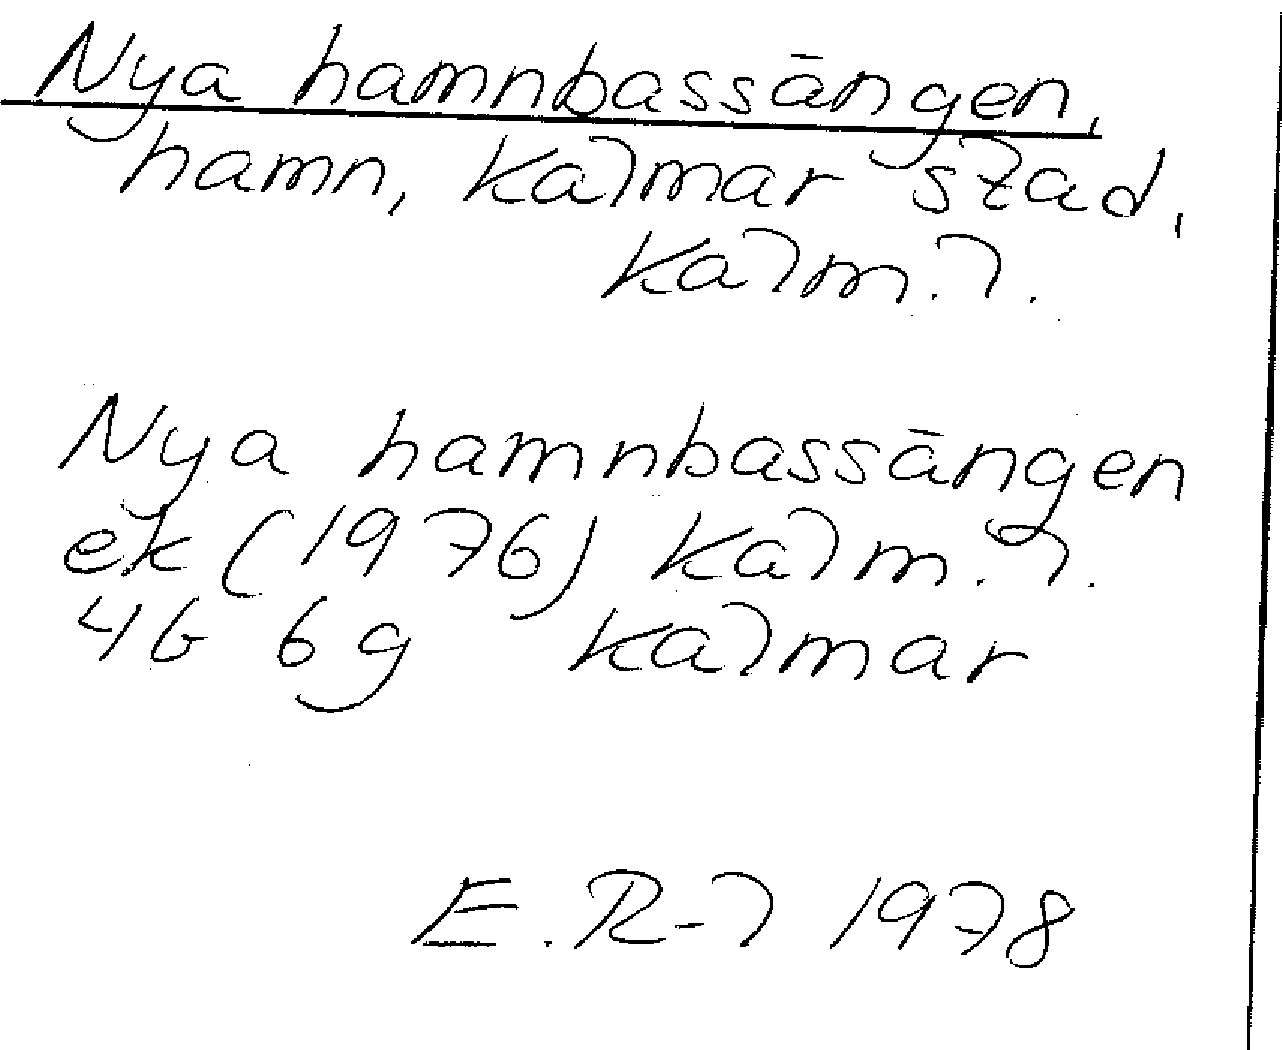 Nya hamnbassängen,
hamn, Kalmar stad,
Kalm. l.
Nya hamnbassängen
ek (1976) Kalm. l.
4G 6g Kalmar
E. R-l 1978